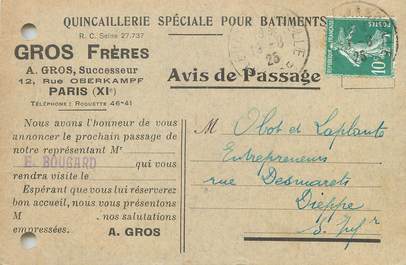 QUINCAILLERIE SPÉCIALE POUR BATIMENTS
R. C. Seine 27.737
GROS FRÈRES
A. GROS, Successeur
12, Rue OBERKAMPF
PARIS (XIe)
TÉLÉPHONE : ROQUETTE 46-41
Avis de Passage
25
POSTES
10
Nous avons l'honneur de vous
annoncer le prochain passage de
notre représentant Mr
E. BOUGARD qui vous
rendra visite le
Espérant que vous lui réserverez
bon accueil, nous vous présentons
M nos salutations
empressées. A. GROS
M Obot et Laplante
Entrepreneurs
rue Desmarets
Dieppe
S. Infr